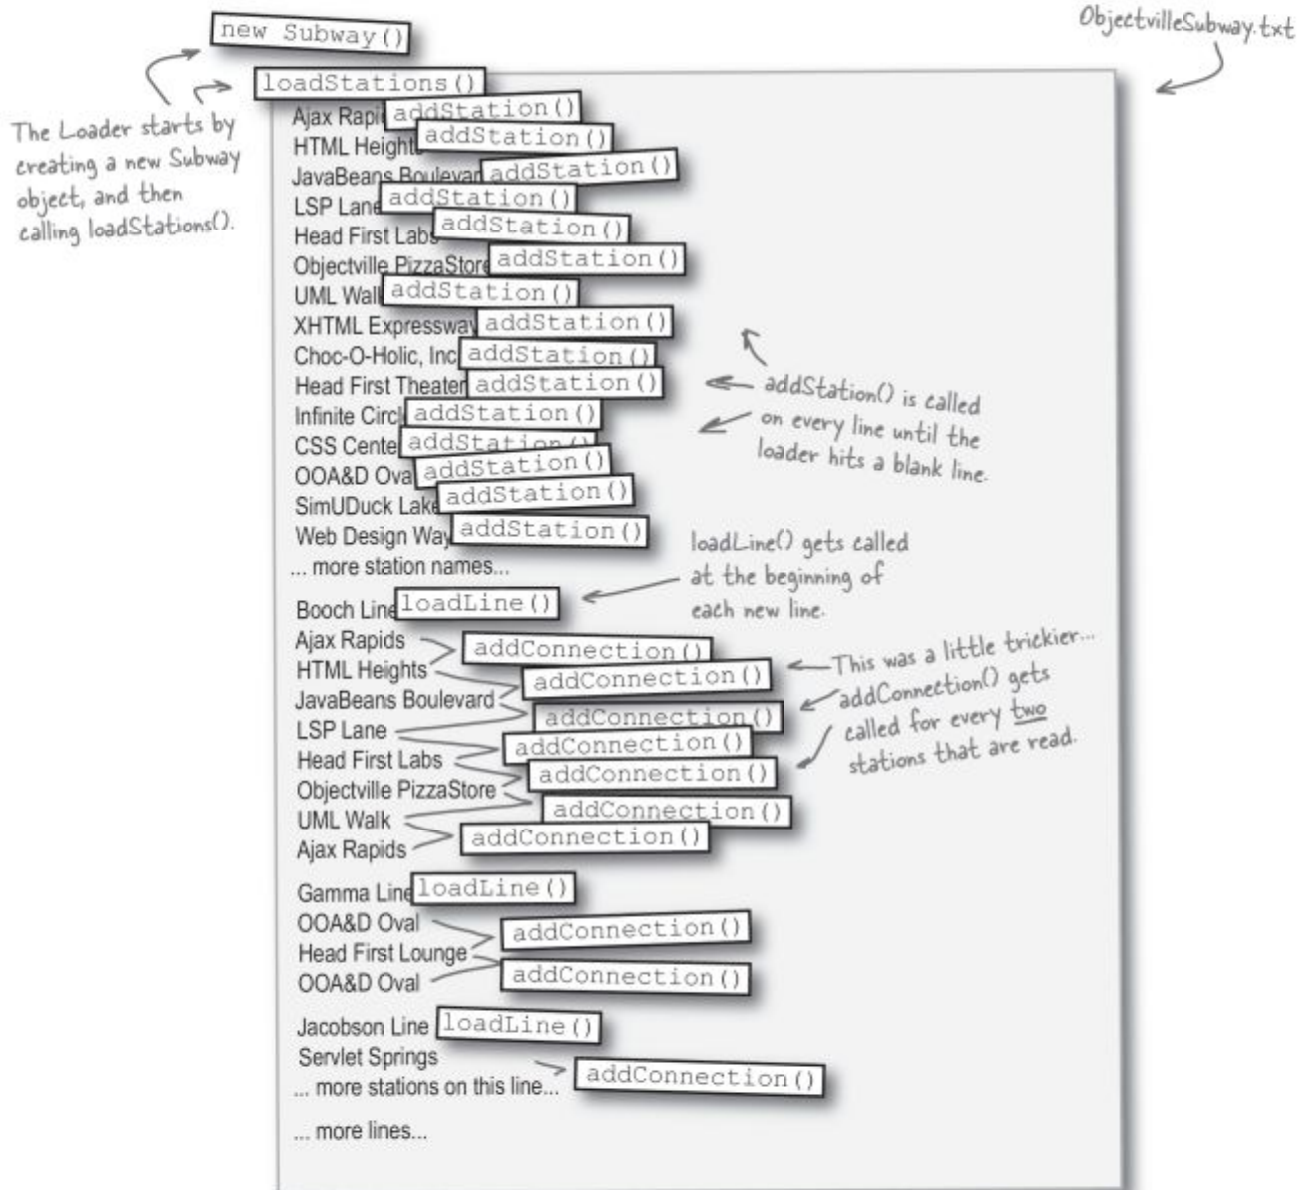 new Subway()
ObjectvilleSubway.txt
loadStations()
The Loader starts by
creating a new Subway
object, and then
calling loadStations().
Ajax Rapi addStation()
HTML Height addStation()
JavaBeans Boulevar addStation()
LSP Lane addStation()
Head First Labs addStation()
Objectville PizzaStore addStation()
UML Wal addStation()
XHTML Expressway addStation()
Choc-O-Holic, Inc addStation()
Head First Theater addStation()
Infinite Circl addStation()
CSS Cente addStation()
OOA&D Ova addStation()
SimUDuck Lake addStation()
Web Design Way addStation()
... more station names...
addStation() is called
on every line until the
loader hits a blank line.
Booch Line loadLine()
loadLine() gets called
at the beginning of
each new line.
Ajax Rapids
HTML Heights
JavaBeans Boulevard
LSP Lane
Head First Labs
Objectville PizzaStore
UML Walk
Ajax Rapids
addConnection()
addConnection()
addConnection()
addConnection()
addConnection()
addConnection()
addConnection()
This was a little trickier...
addConnection() gets
called for every two
stations that are read.
Gamma Line loadLine()
OOA&D Oval
Head First Lounge
OOA&D Oval
addConnection()
addConnection()
Jacobson Line loadLine()
Servlet Springs
addConnection()
... more stations on this line...
... more lines...